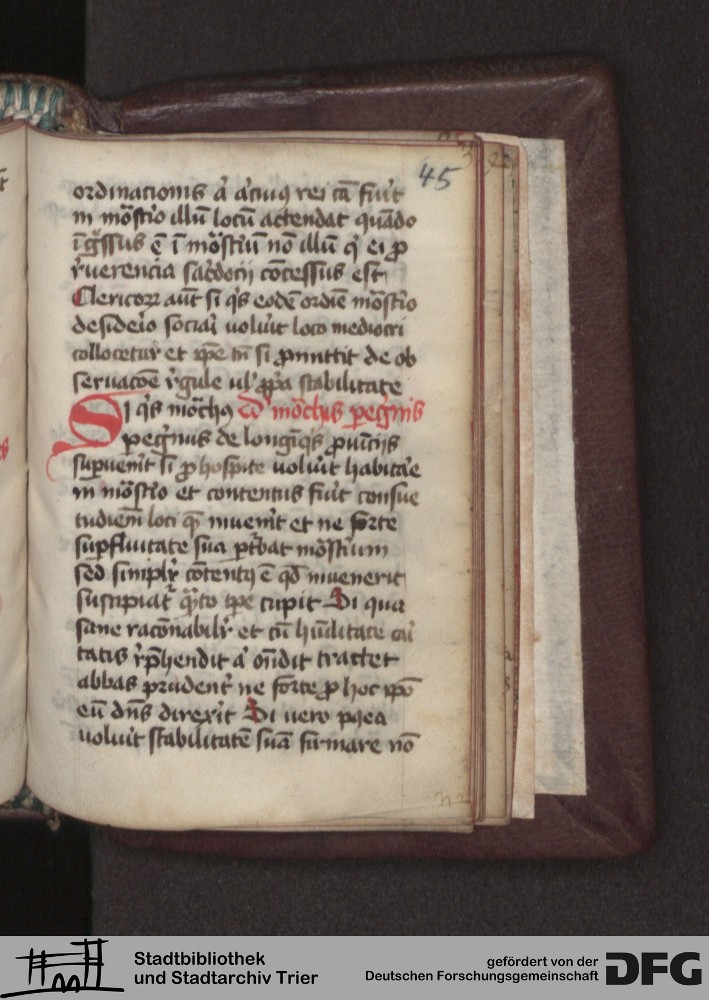 45
ordinacionis a̅ a̅ciuꝯ rei ca̅ fiu̅t
in mo̅st̅io illu̅ locu̅ actendat qua̅do
i̅g̅ssus e̅ i̅ mo̅st̅iu̅ no̅ illu̅ q̅ ei ꝓ
r̅uerencia sac̅docij co̅cessus est
Clericoꝝ au̅t si q̅s eode̅ ordi̅e mo̅st̅io
deside̅io sociai̅ uolu̅it loco mediocri
collocetur̅ et ip̅e tn̅ si ꝓmittit de ob
seruaco̅e r̅gule ul̅ ꝓp̅a stabilitate
Si q̅s mo̅chꝯ De mo̅chis peg̅nis
peg̅nus de longi̅q̅s ꝓui̅cijs
supuen̅it si̅ ꝓ hospite uolu̅it habita̅e
in mo̅st̅io et contentus fiu̅t consue
tudiem̅ loci qm̅ inuen̅it et ne forte
sup̅fluitate sua pt̅bat mo̅st̅ium
sed simplr̅ co̅tentꝯ e̅ qd̅ inuenerit
suscipiat̅ q̅̅to tp̅e cupit Si qua
sane raco̅nabilr̅ et cu̅ hu̅ilitate ca̅i
tatis r̅p̅hendit a̅ on̅dit tractet
abbas prudent̅ ne forte ꝓ hoc ip̅o
eu̅ dn̅s direx̅it Si uero pꝯea
uolu̅it stabilitate̅ sua̅ firmare no̅
Stadtbibliothek
und Stadtarchiv Trier
gefördert von der
Deutschen Forschungsgemeinschaft
DFG